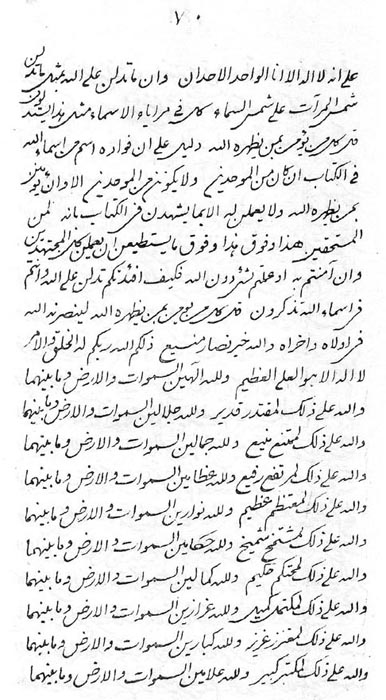 ٧٠
على انه لا اله الا انا الواحد الاحدان وان ما تدلن على الله بمثل ما تدلن
شمس المرآت على شمس السماء كل في مرايا الاسماء مثل
قل كل من يؤمن بمن يظهره الله دليل على ان فواده اسم من اسماء الله
في الكتاب ان كان من الموحدين ولا يكونن من الموحدين الا وان يؤمنن
بمن يظهره الله ولا يعملن له الا بما يشهدن في الكتاب بانه لمن
المستحقين هذا وفوق هذا وفوق ما يستطيعن ان يعملن كل المجتهدين
وان آمنتم به اذ عملتم الله فكيف افئدتكم تدلن على الله وانتم
في اسماء الله تذكرون قل كل من يؤمن بمن يظهره الله لينصرنه الله
في اولاه واخراه والله خير نصار منيع ذلكم الله ربكم له الخلق والامر
لا اله الا هو العلي العظيم ولله الهين السموات والارض وما بينهما
والله على ذلك لمقتدر قدير ولله جلالين السموات والارض وما بينهما
والله على ذلك لممتنع منيع ولله جمالين السموات والارض وما بينهما
والله على ذلك لمرتفع رفيع ولله عظامين السموات والارض وما بينهما
والله على ذلك لمعتظم عظيم ولله نوارين السموات والارض وما بينهما
والله على ذلك ولله حكامين السموات والارض وما بينهما
والله على ذلك لمحتكم حكيم ولله كمالين السموات والارض وما بينهما
والله على ذلك لمكتمل كميل ولله عزازين السموات والارض وما بينهما
والله على ذلك لمعتزز عزيز ولله كبارين السموات والارض وما بينهما
والله على ذلك لمكتبر كبير ولله علامين السموات والارض وما بينهما